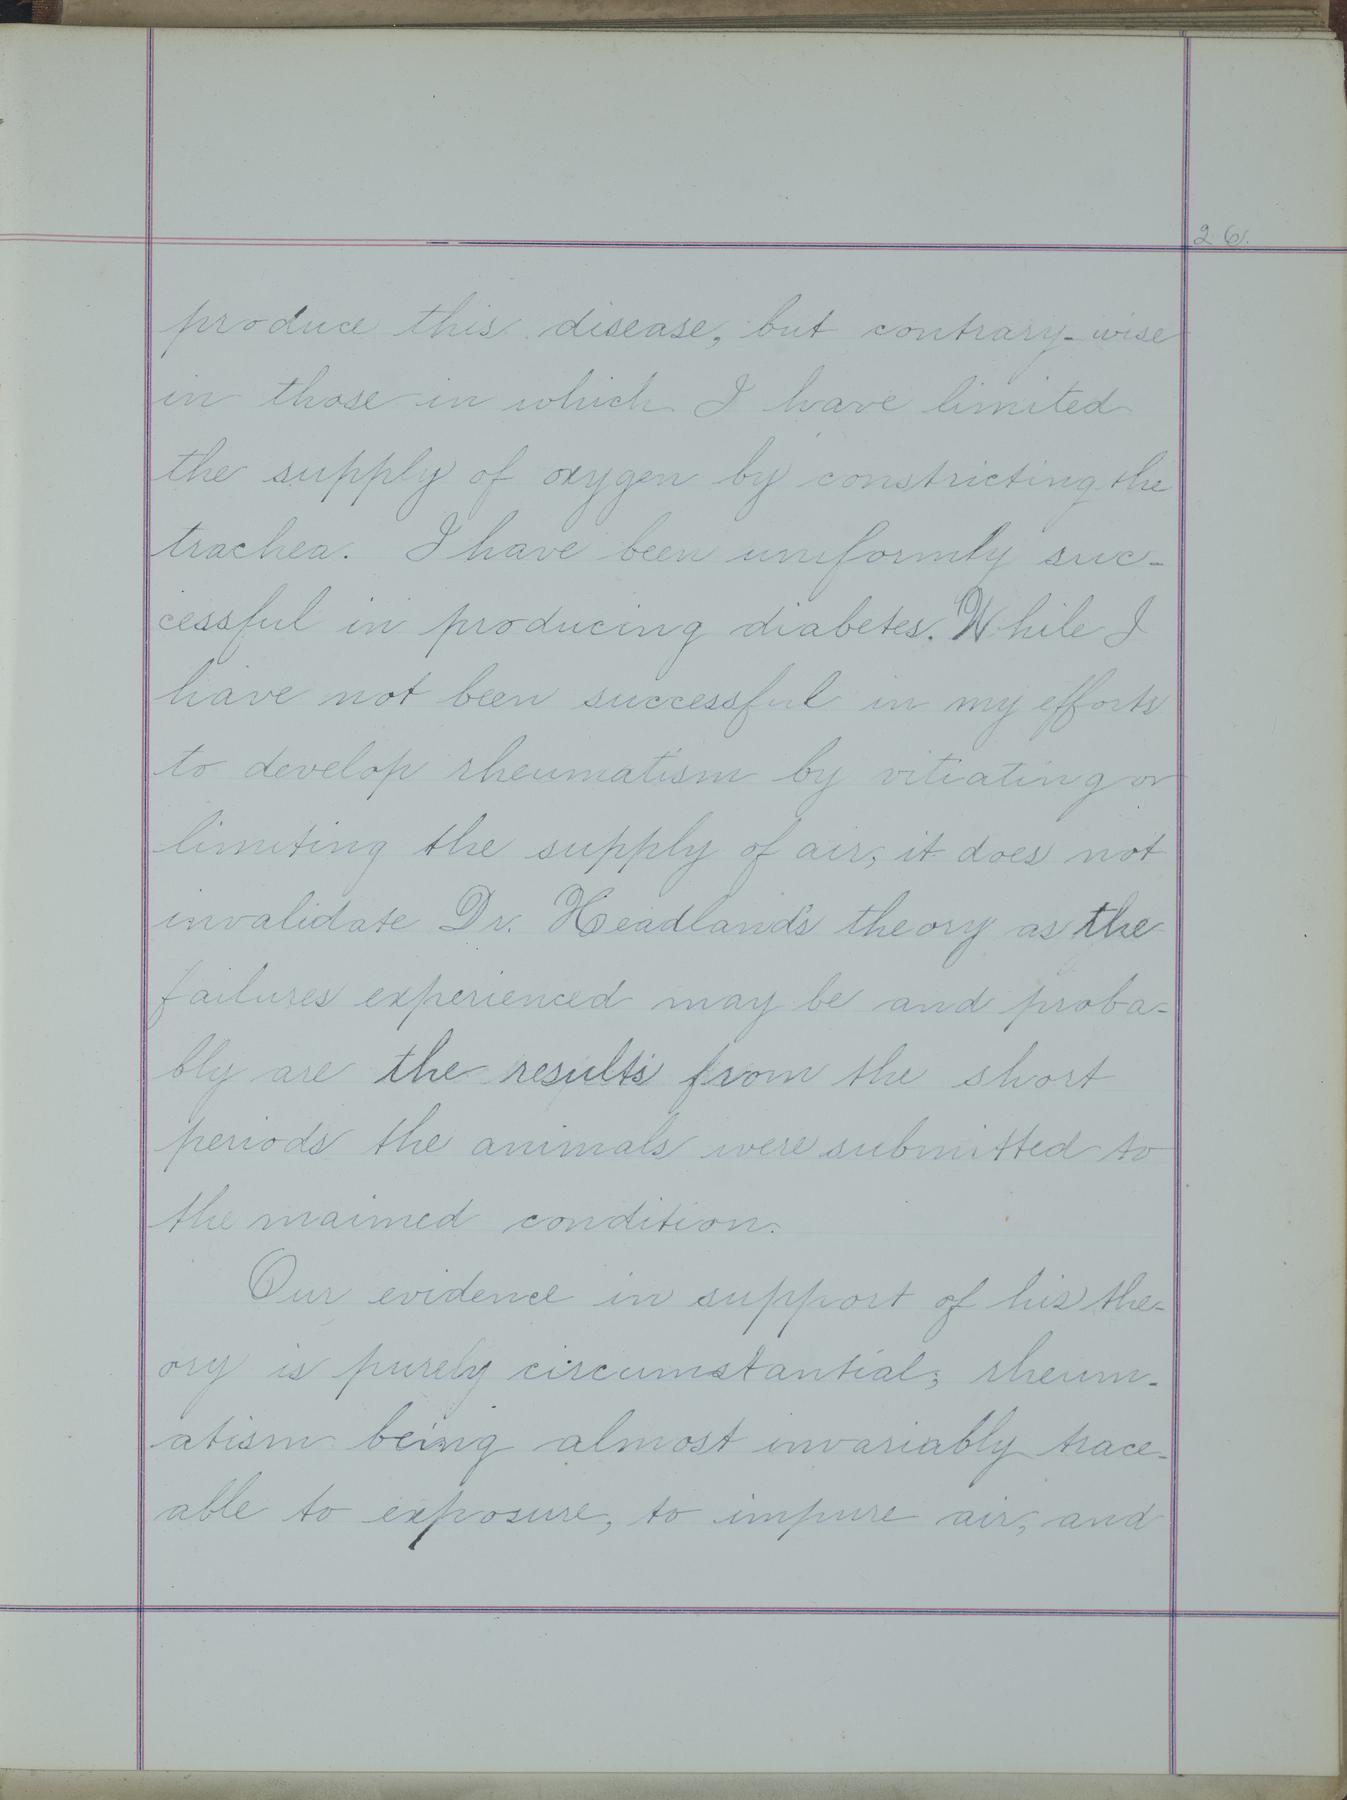 26.
produce this disease, but contrary-wise
in those in which I have limited
the supply of oxygen by constricting the
trachea. I have been uniformly suc-
cessful in producing diabetes. While I
have not been successful in my efforts
to develop rheumatism by vitiating or
limiting the supply of air, it does not
invalidate Dr. Headland's theory as the
failures experienced may be and proba-
bly are the results from the short
periods the animals were submitted to
the maimed condition.
Our evidence in support of his the-
ory is purely circumstantial; rheum-
atism being almost invariably trace-
able to exposure, to impure air, and